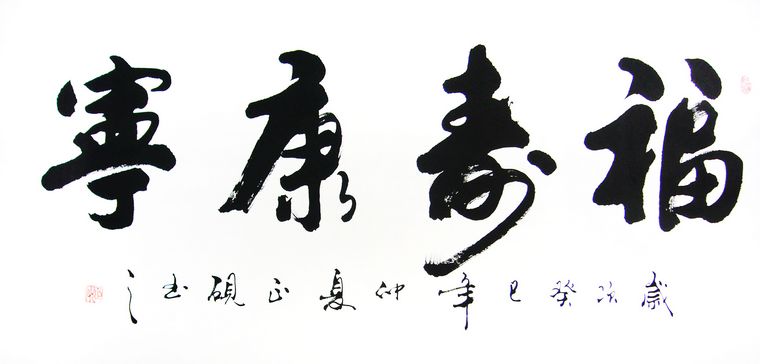 福壽康寧
歲次癸巳年仲夏正硯書之